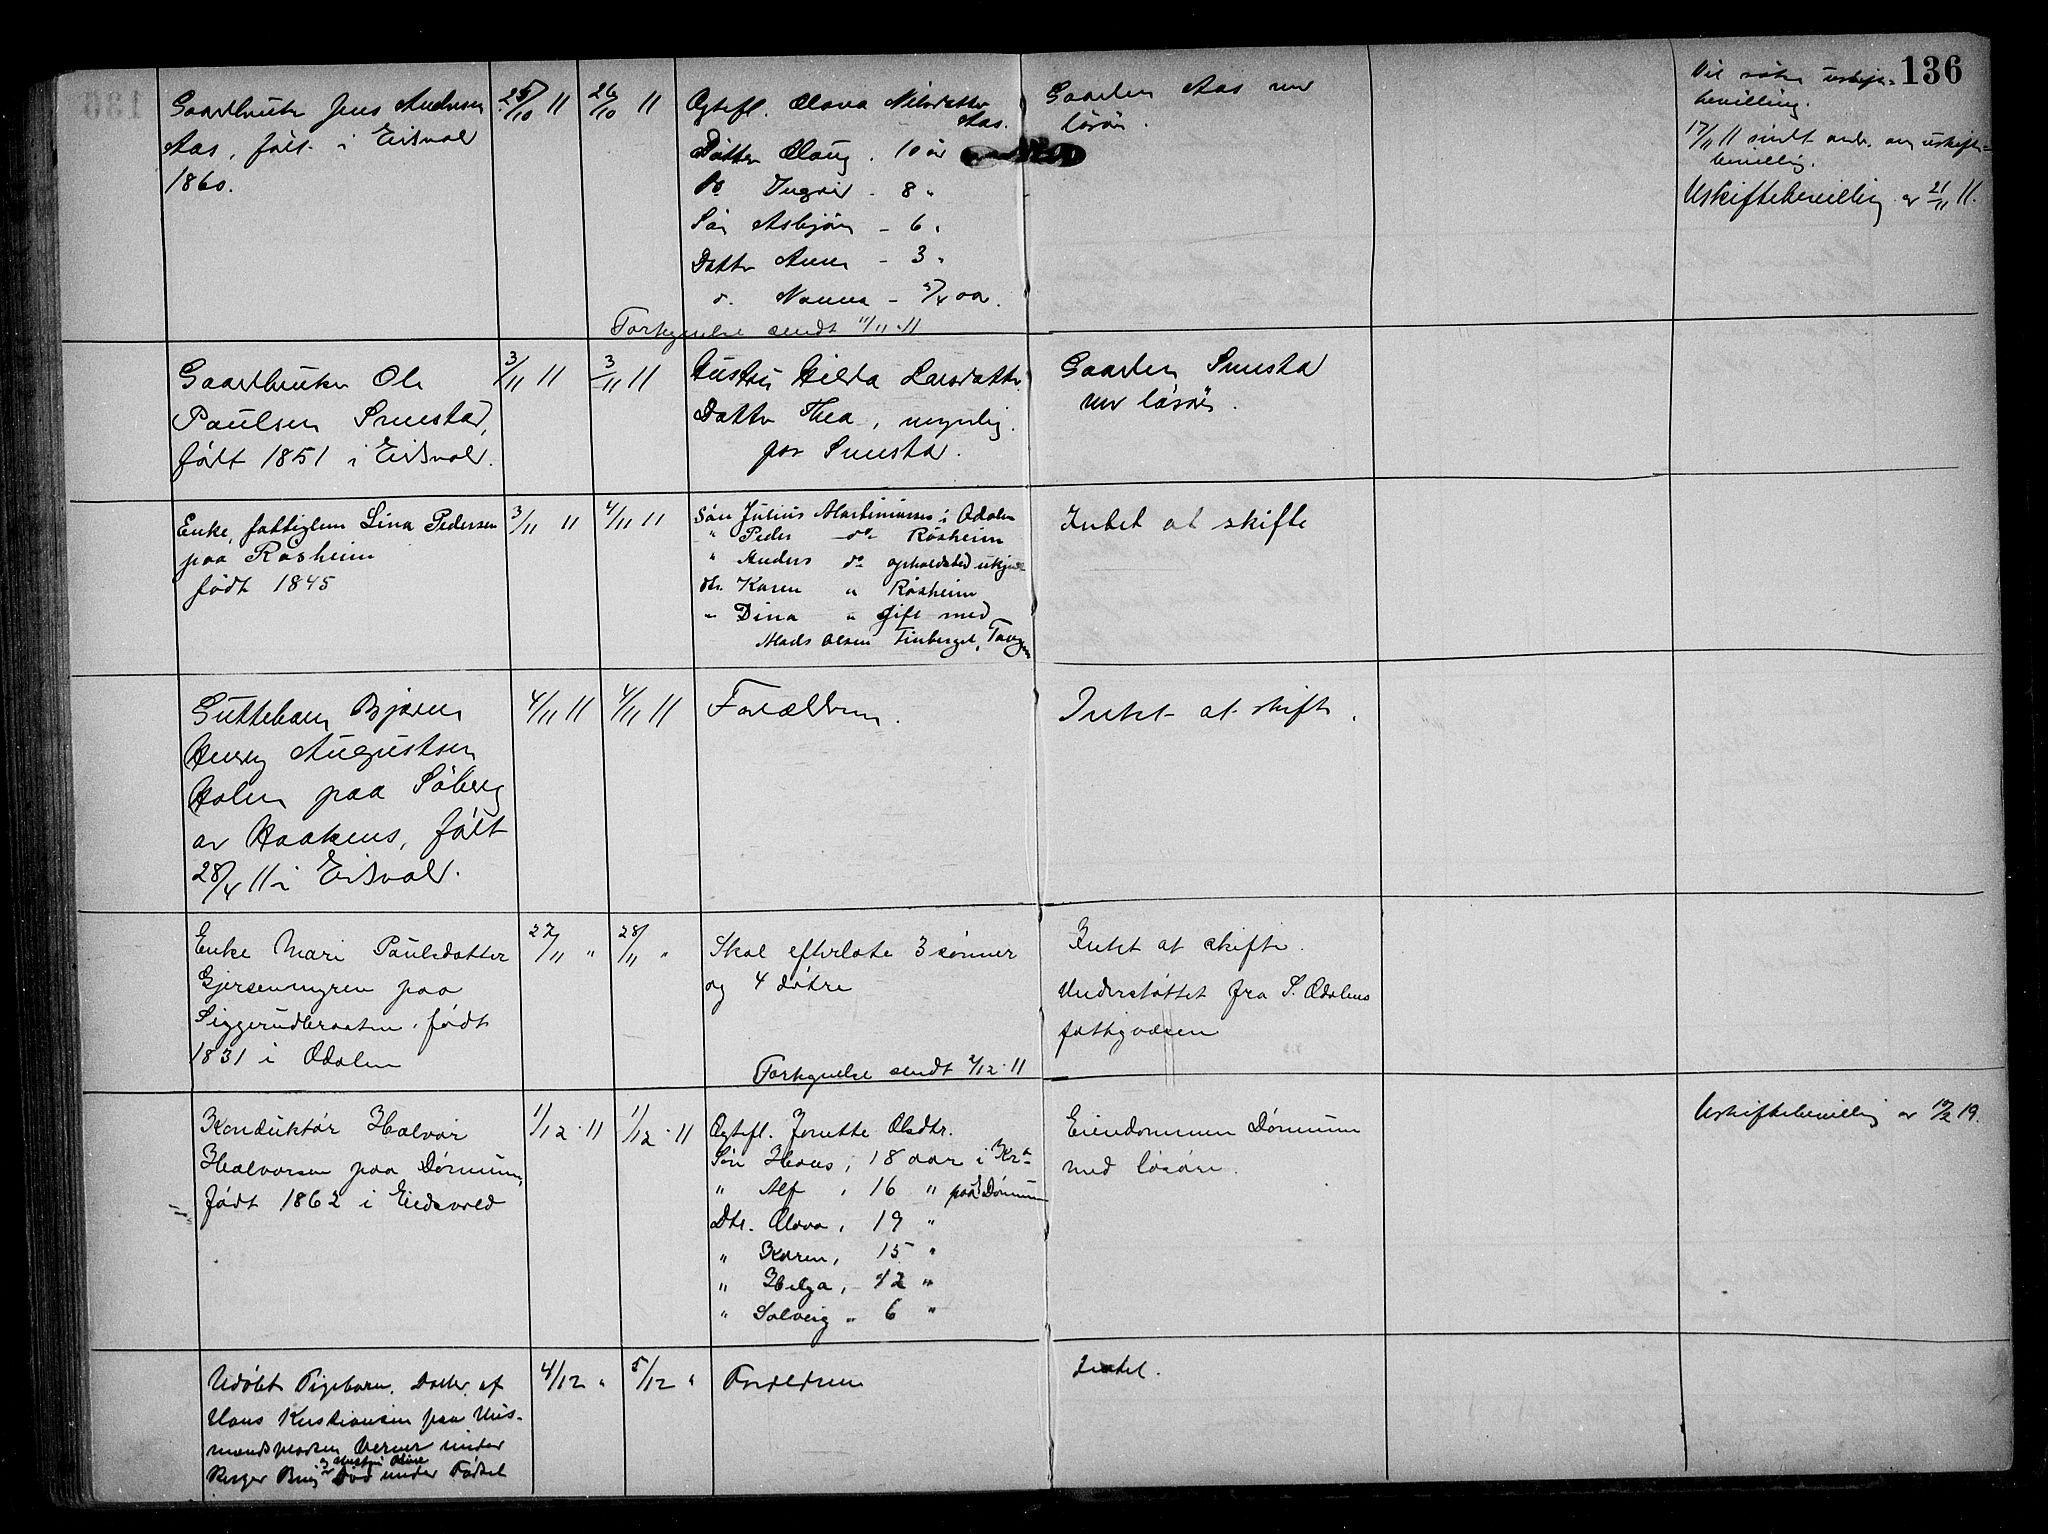 136
Gaardbruker Jens Andersen
Aas, født i Eidsvold
1860.
25/10 11
26/10 11
Egtefl. Olava Nilsdatter
Aas.
Datter Olaug. 10 år
Do Ingrid - 8 "
Søn Asbjørn - 6 "
Datter Anna - 3 "
d. Nanna - 5/4 aar.
Gaarden Aas med
løsøre.
Vil søke uskifte-
bevilling.
17/11 11 sendt andr. om uskifte-
bevilling.
Uskiftebevilling av 21/11 11.
Fortegnelse sendt 11/11 11
Gaardbruker Ole
Paulsen Smestad,
født 1851 i Eidsvold.
3/11 11
3/11 11
Hustru Hilda Larsdatter.
Datter Thea, myndig.
paa Smestad.
Gaarden Smestad
med løsøre.
Enke, fattiglem Lina Pedersen
paa Røsheim
født 1845
3/11 11
4/11 11
Søn Julius Martiniussen i Odalen
" Peder do Røsheim
" Anders do opholdsted ukjendt
dtr. Karen " Røsheim
" Dina " gift med
Mads Olsen Finberget, Tangen
Intet at skifte
Guttebarn Bjarne
Henry Augustsen
Holen paa Søberg
av Haakens, født
28/4 11 i Eidsvold.
4/11 11
4/11 11
Forældrene.
Intet at skifte.
Enke Mari Paulsdatter
Gjersenmyren paa
Siggerudbraaten. født
1831 i Odalen
27/11 "
28/11 "
Skal efterlate 3 sønner
og 4 døtre
Intet at skifte.
Understøttet fra S. Odalens
fattigvæsen
Fortegnelse sendt 2/12 11
Konduktør Halvor
Halvorsen paa Dørmum,
født 1862 i Eidsvold
1/12 11
1/12 11
Egtefl. Jonette Olsdtr.
Søn Hans, 18 aar i Kr.a
" Alf, 16 " paa Dørmum
Dtr. Olava, 19 "
" Karen, 15 "
" Helga, 12 "
" Solveig " 6 "
Eiendommen Dørmum
med løsøre.
Uskiftebevilling av 19.
Udøbt Pigebarn, Datter af
Hans Kristiansen paa Hus-
mandspladsen Verner under
og Hustru Oline
Død under Fødsel
4/12 "
5/12 "
Forældrene
Intet.